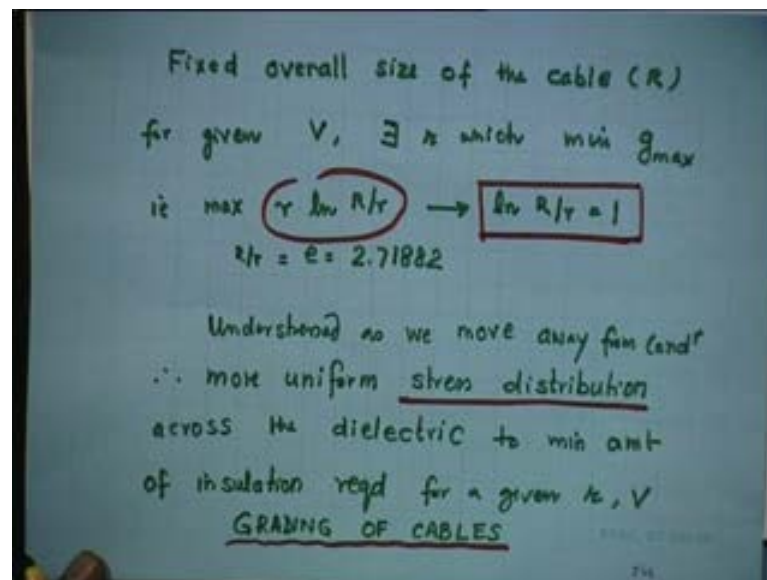 Fixed overall size of the cable (R)
for given V, ∃ r which min gmax
ie max r ln R/r → ln R/r = 1
R/r = e = 2.71882
Understressed as we move away from Condr
∴ more uniform stress distribution
across the dielectric to min amt
of insulation reqd for a given r, V
GRADING OF CABLES